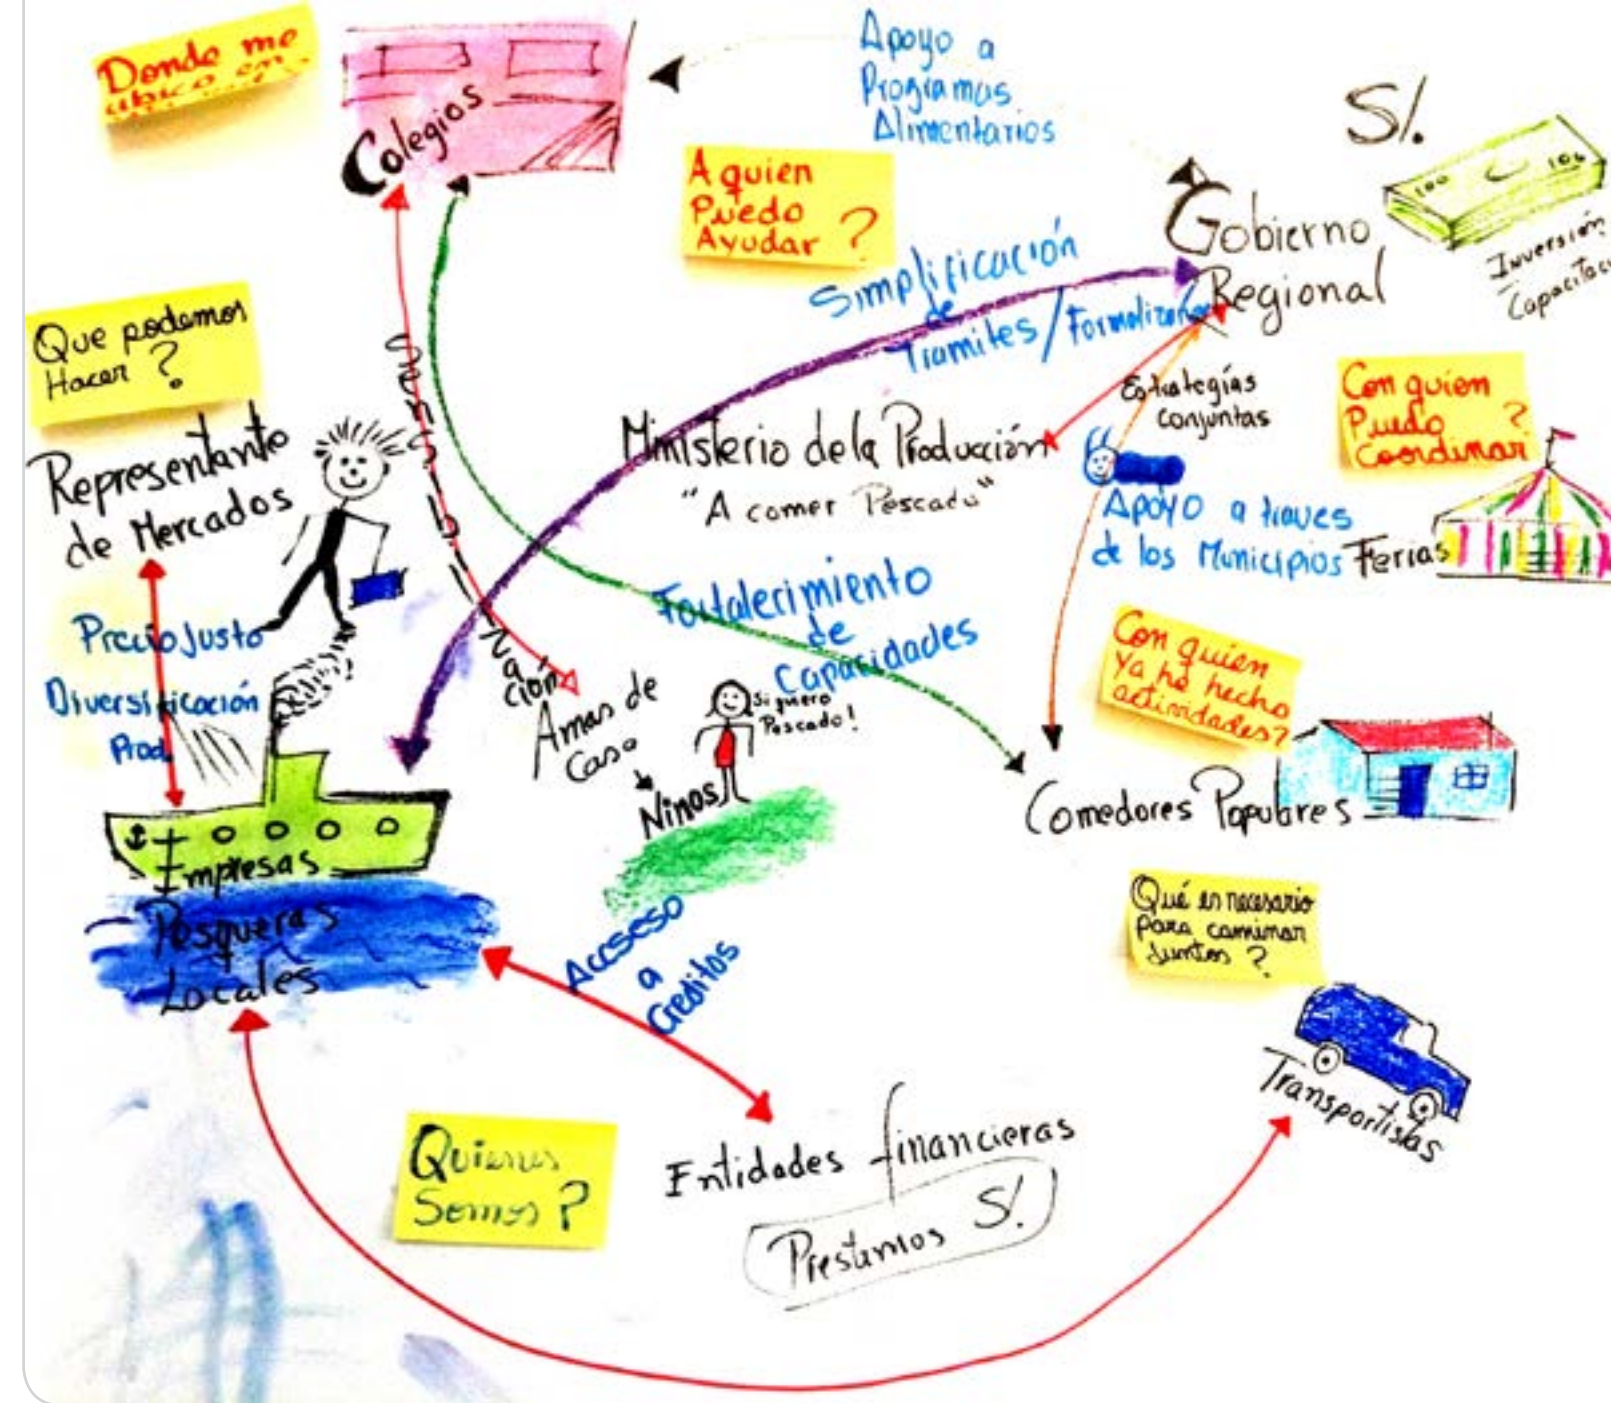 Donde me
ubico en
Colegios
Apoyo a
Programas
Alimentarios
S/.
100
100
Inversión
A quien
Puedo
Ayudar ?
Gobierno
Regional
Simplificación
de
Tramites / Formalización
Que podemos
Hacer ?
Estrategías
conjuntas
Con quien
Puedo ?
Coordinar
Representante
de Mercados
Ministerio de la Producción
"A comer Pescado"
Apoyo a traves
de los Municipios
Ferias
Precio Justo
Diversificación
Prod.
Fortalecimiento
de
Capacidades
Con quien
ya he hecho
actividades?
Amas de
Casa
Si quiero
Pescado!
Ninos
Comedores Populares
Empresas
Pesqueras
Locales
Accseso
a
Creditos
Qué es necesario
para caminar
Juntos ?
Transportistas
Quienes
Somos ?
Entidades financieras
Prestamos S/.